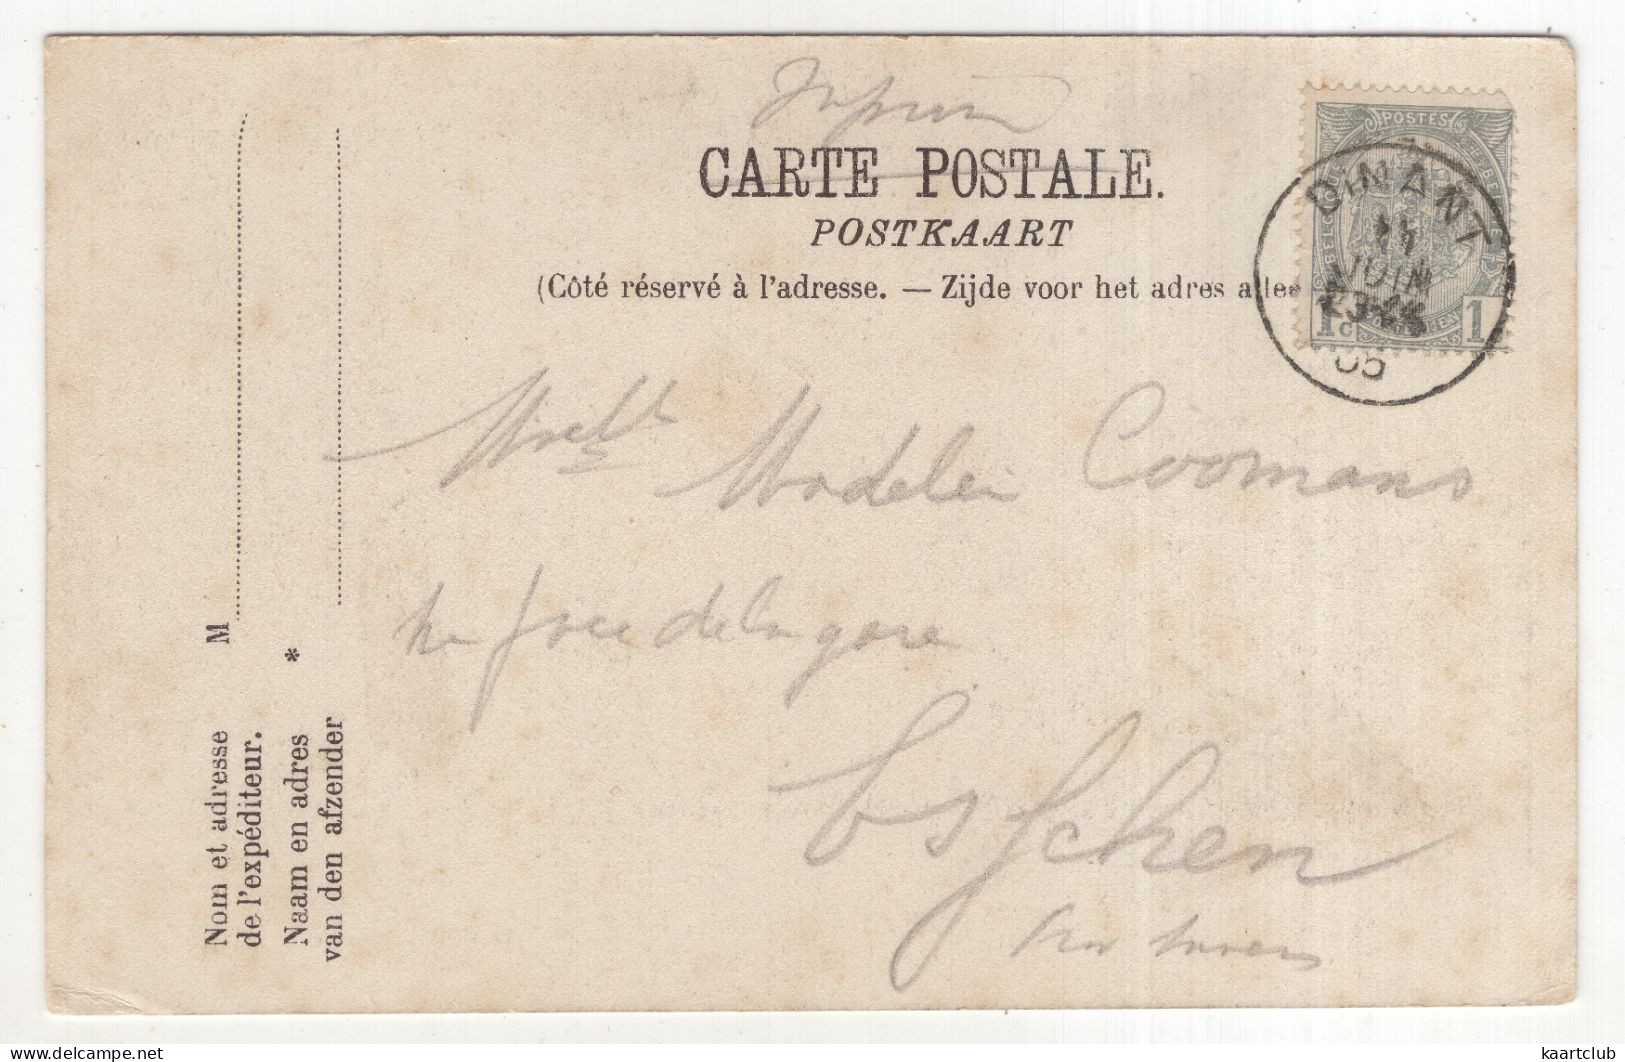 CARTE POSTALE.
POSTKAART
(Côté réservé à l'adresse. — Zijde voor het adres alle
POSTES
1c 1
DINANT
JUIN
05
Melle Madelei Coomans
de la gare
Esschen
M
*
Nom et adresse
de l'expéditeur.
Naam en adres
van den afzender
kaartclub